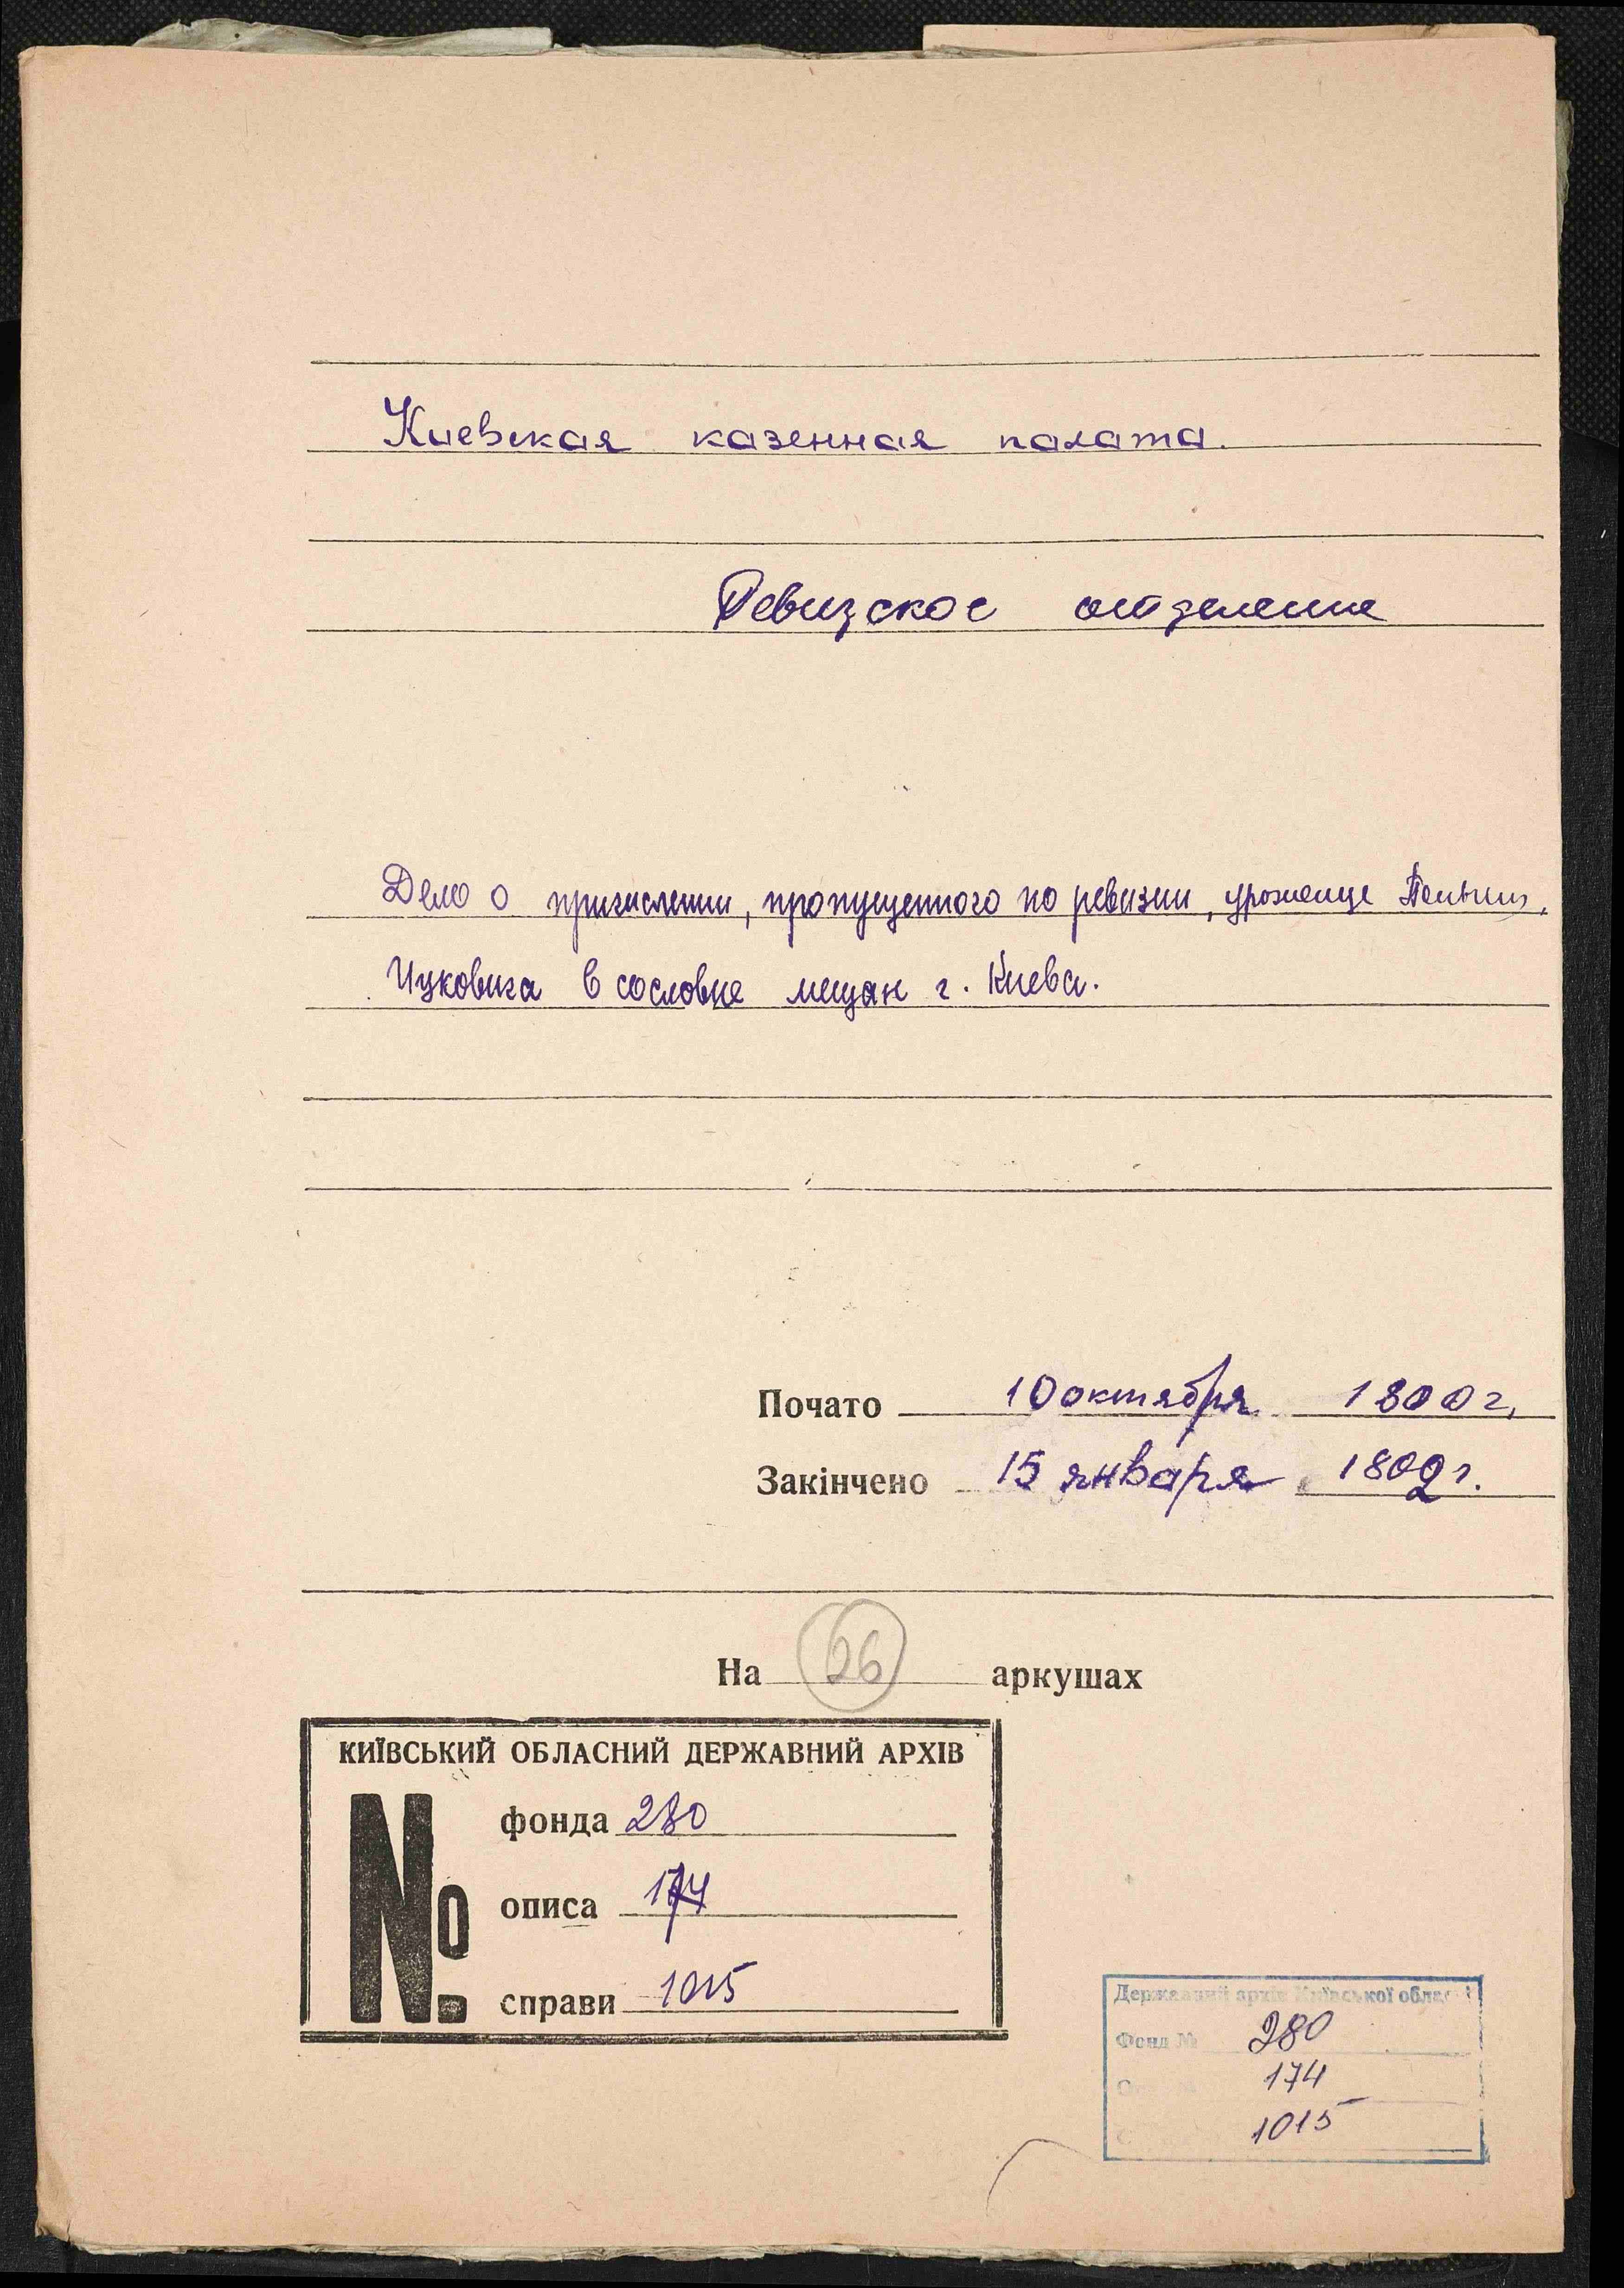 Киевская казенная палата.
Ревизское отделение
Дело о причислении, пропущенного по ревизии, уроженце Польши,
Ицковича в сословие мещан г. Киева.
Почато 10 октября 1800 г.
Закінчено 15 января 1802 г.
На 26 аркушах
КИЇВСЬКИЙ ОБЛАСНИЙ ДЕРЖАВНИЙ АРХІВ
№
фонда 280
описа 174
справи 1015
Державний архів Київської області
Фонд № 280
174
1015